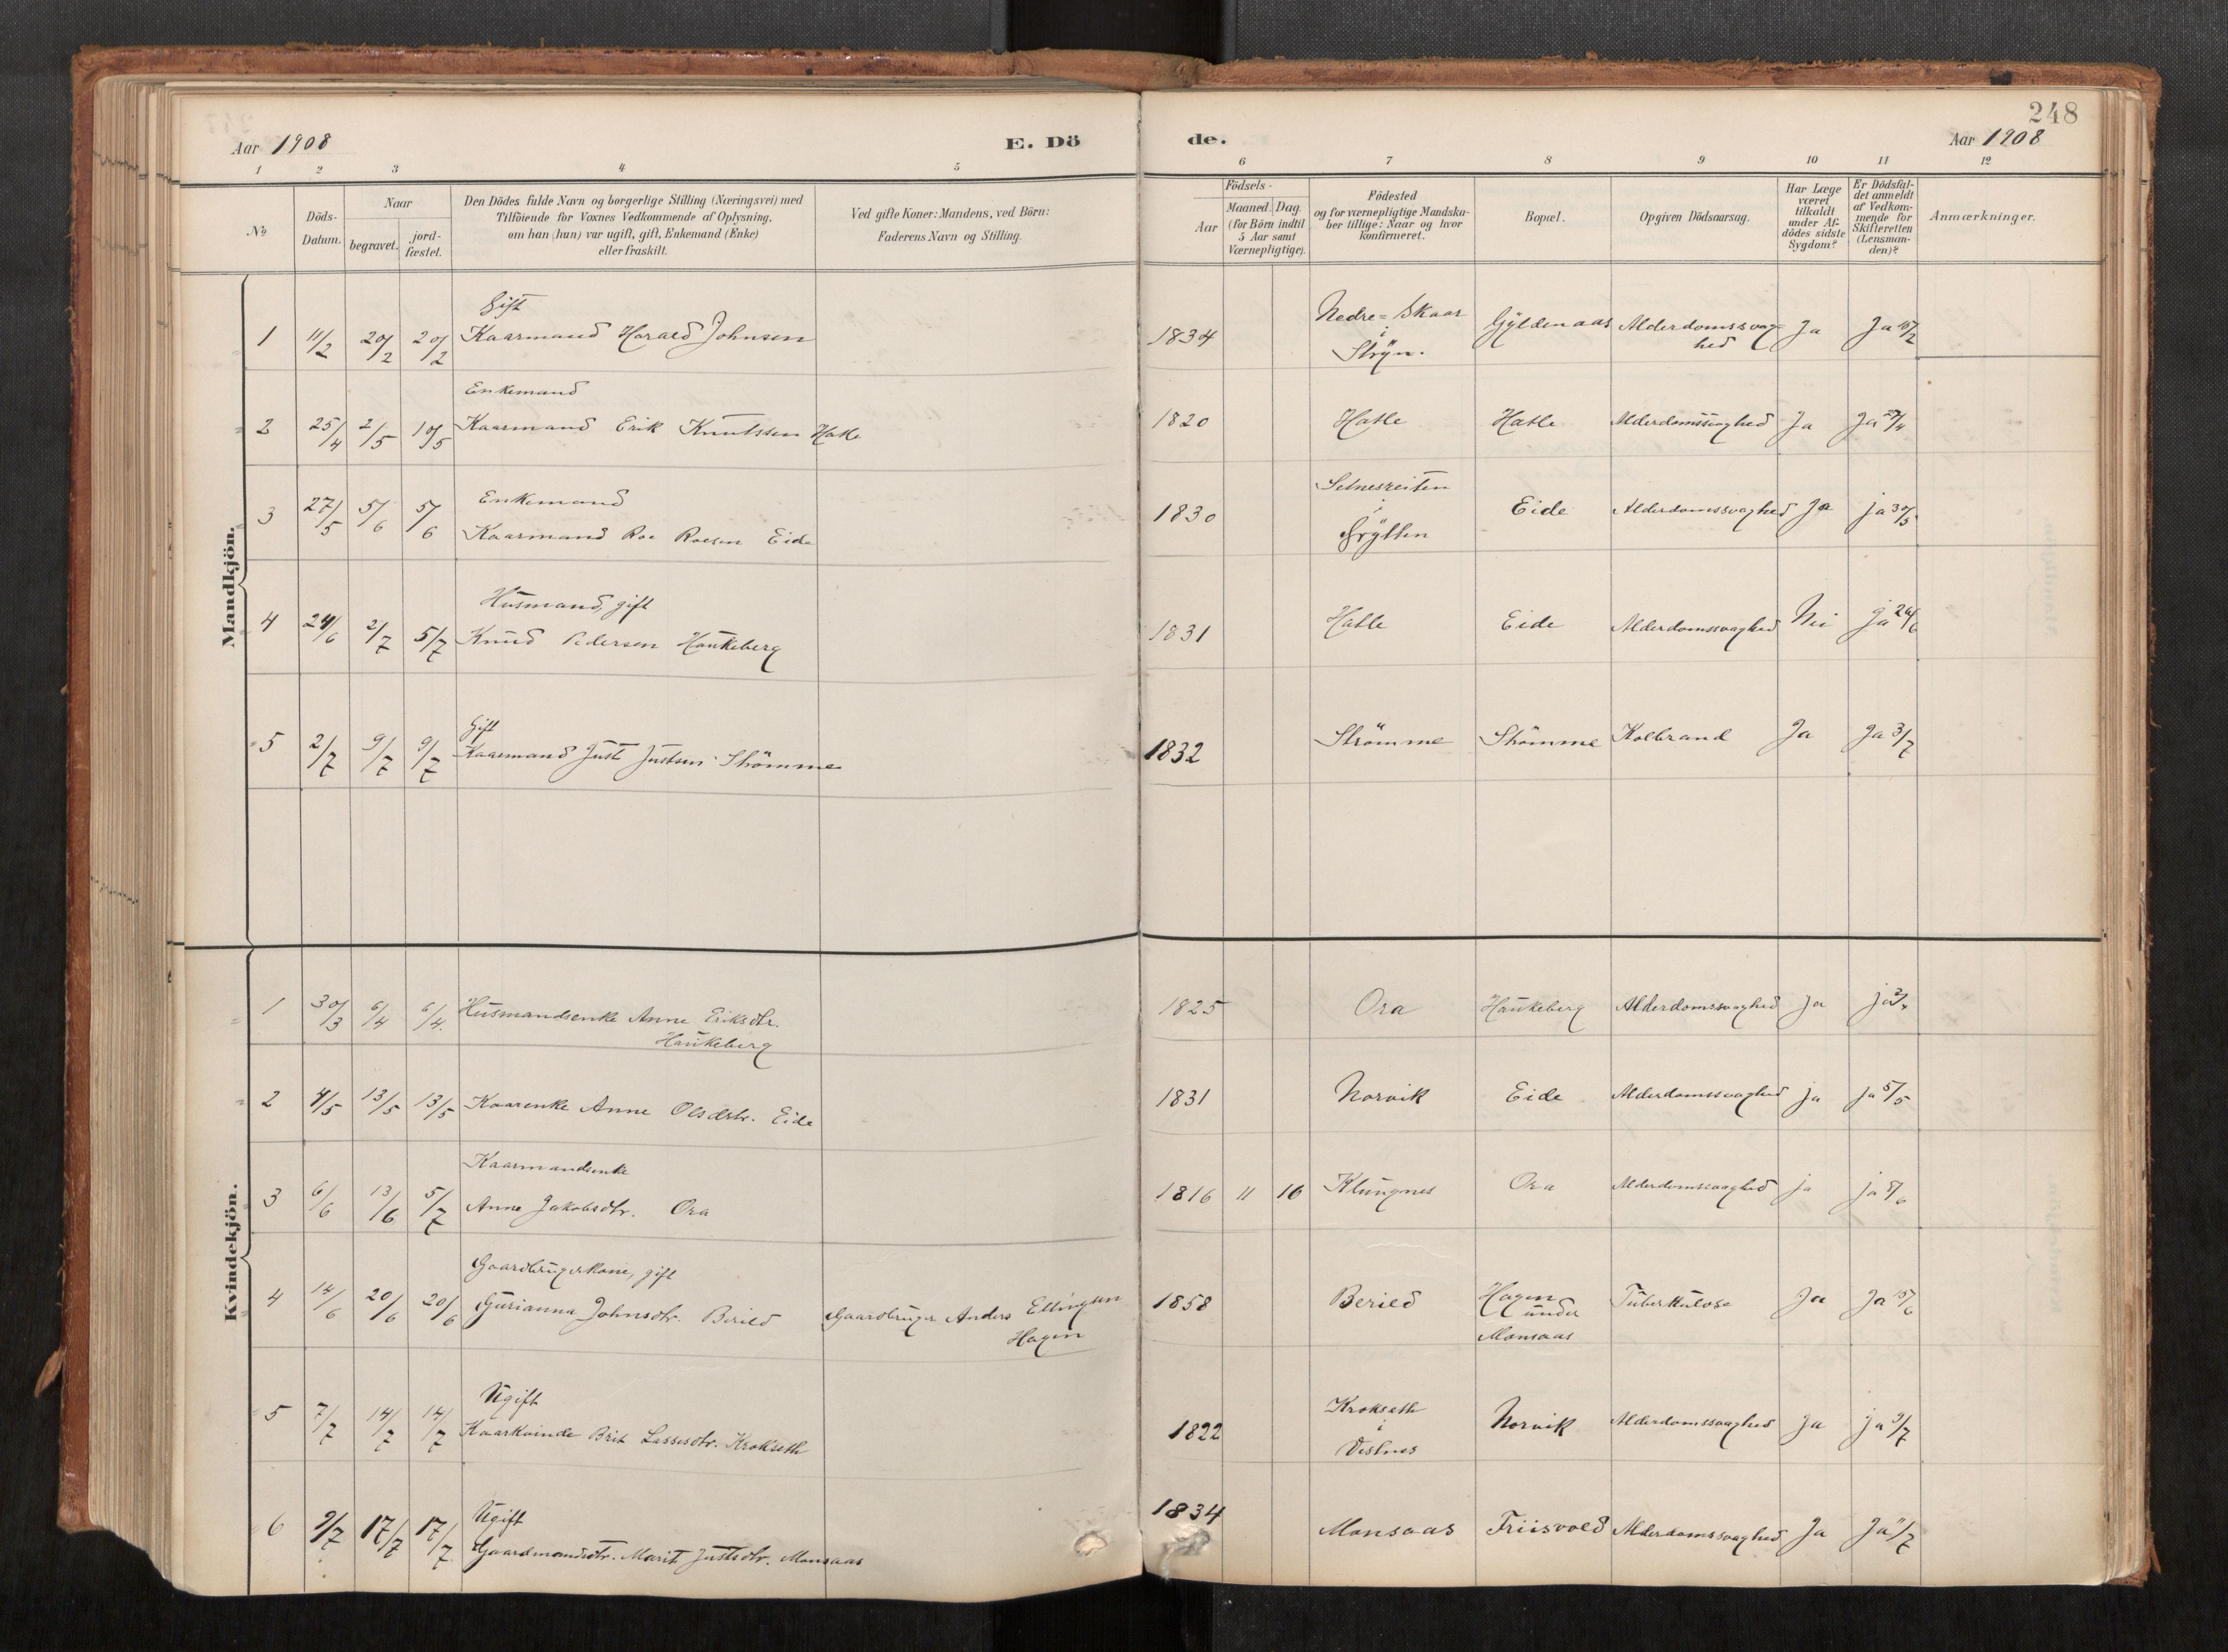 248
Aar 1908 E. Dö de. Aar 1908
1 2 3 4 5 6 7 8 9 10 11 12
№
Döds-
Datum.
Naar
begravet.
jord-
fæstet.
Den Dödes fulde Navn og borgerlige Stilling (Næringsvei) med
Tilföiende for Voxnes Vedkommende af Oplysning,
om han (hun) var ugift, gift, Enkemand (Enke)
eller fraskilt.
Ved gifte Koner: Mandens, ved Börn:
Faderens Navn og Stilling.
Födsels-
Aar
Maaned. Dag.
(for Börn indtil
5 Aar samt
Værnepligtige).
Födested
og for værnepligtige Mandska-
ber tillige: Naar og hvor
konfirmeret.
Bopæl.
Opgiven Dödsaarsag.
Har Læge
været
tilkaldt
under Af-
dödes sidste
Sygdom?
Er Dödsfal-
det anmeldt
af Vedkom-
mende for
Skifteretten
(Lensman-
den)?
Anmærkninger.
Mandkjön.
Gift Nedre=Skaar
1 11/2 20/2 20/2 Kaarmand Harald Johnsen 1834 i Gyldenaas Alderdomssvag- Ja Ja 15/2
Stryn. hed
Enkemand
2 25/4 2/5 10/5 Kaarmand Erik Knutssen Hatle 1820 Hatle Hatle Alderdomssvaghed Ja Ja 27/4
Enkemand Setnesreiten
3 27/5 5/6 5/6 Kaarmand Roe Roesen Eide 1830 i Eide Alderdomssvaghed Ja ja 30/5
Grytten
Husmand, gift
4 24/6 2/7 5/7 Knud Pedersen Haukeberg 1831 Hatle Eide Alderdomssvaghed Nei ja 26/6
Gift
5 2/7 9/7 9/7 Kaarmand Just Justsen Strömme 1832 Strömme Strömme Kolbrand Ja Ja 3/7
Kvindekjön.
1 30/3 6/4 6/4. Husmandsenke Anne Eriksdtr. 1825 Ora Haukeberg Alderdomssvaghed ja ja 2/4
Haukeberg
2 4/5 13/5 13/5 Kaarenke Anne Olsdtr. Eide 1831 Norvik Eide Alderdomssvaghed ja ja 5/5
Kaarmandsenke
3 6/6 13/6 5/7 Anne Jakobsdtr. Ora 1816 11 16 Klungnes Ora Alderdomssvaghed ja ja 8/6
Gaardbrugerkone, gift
4 14/6 20/6 20/6 Gurianna Johnsdtr. Berild Gaardbruger Anders Ellingsen 1858 Berild Hagen Tuberkulose Ja Ja 15/6
Hagen under
Monsaas
Ugift Krokseth
5 7/7 14/7 14/7 Kaarkvinde Brit Lassesdtr. Krokseth 1822 i Norvik Alderdomssvaghed Ja ja 9/7
Vestnes
Ugift
6 9/7 17/7 17/7 Gaardmandsdtr. Marit Justsdtr. Monsaas 1834 Monsaas Friisvold Alderdomssvaghed Ja Ja 11/7